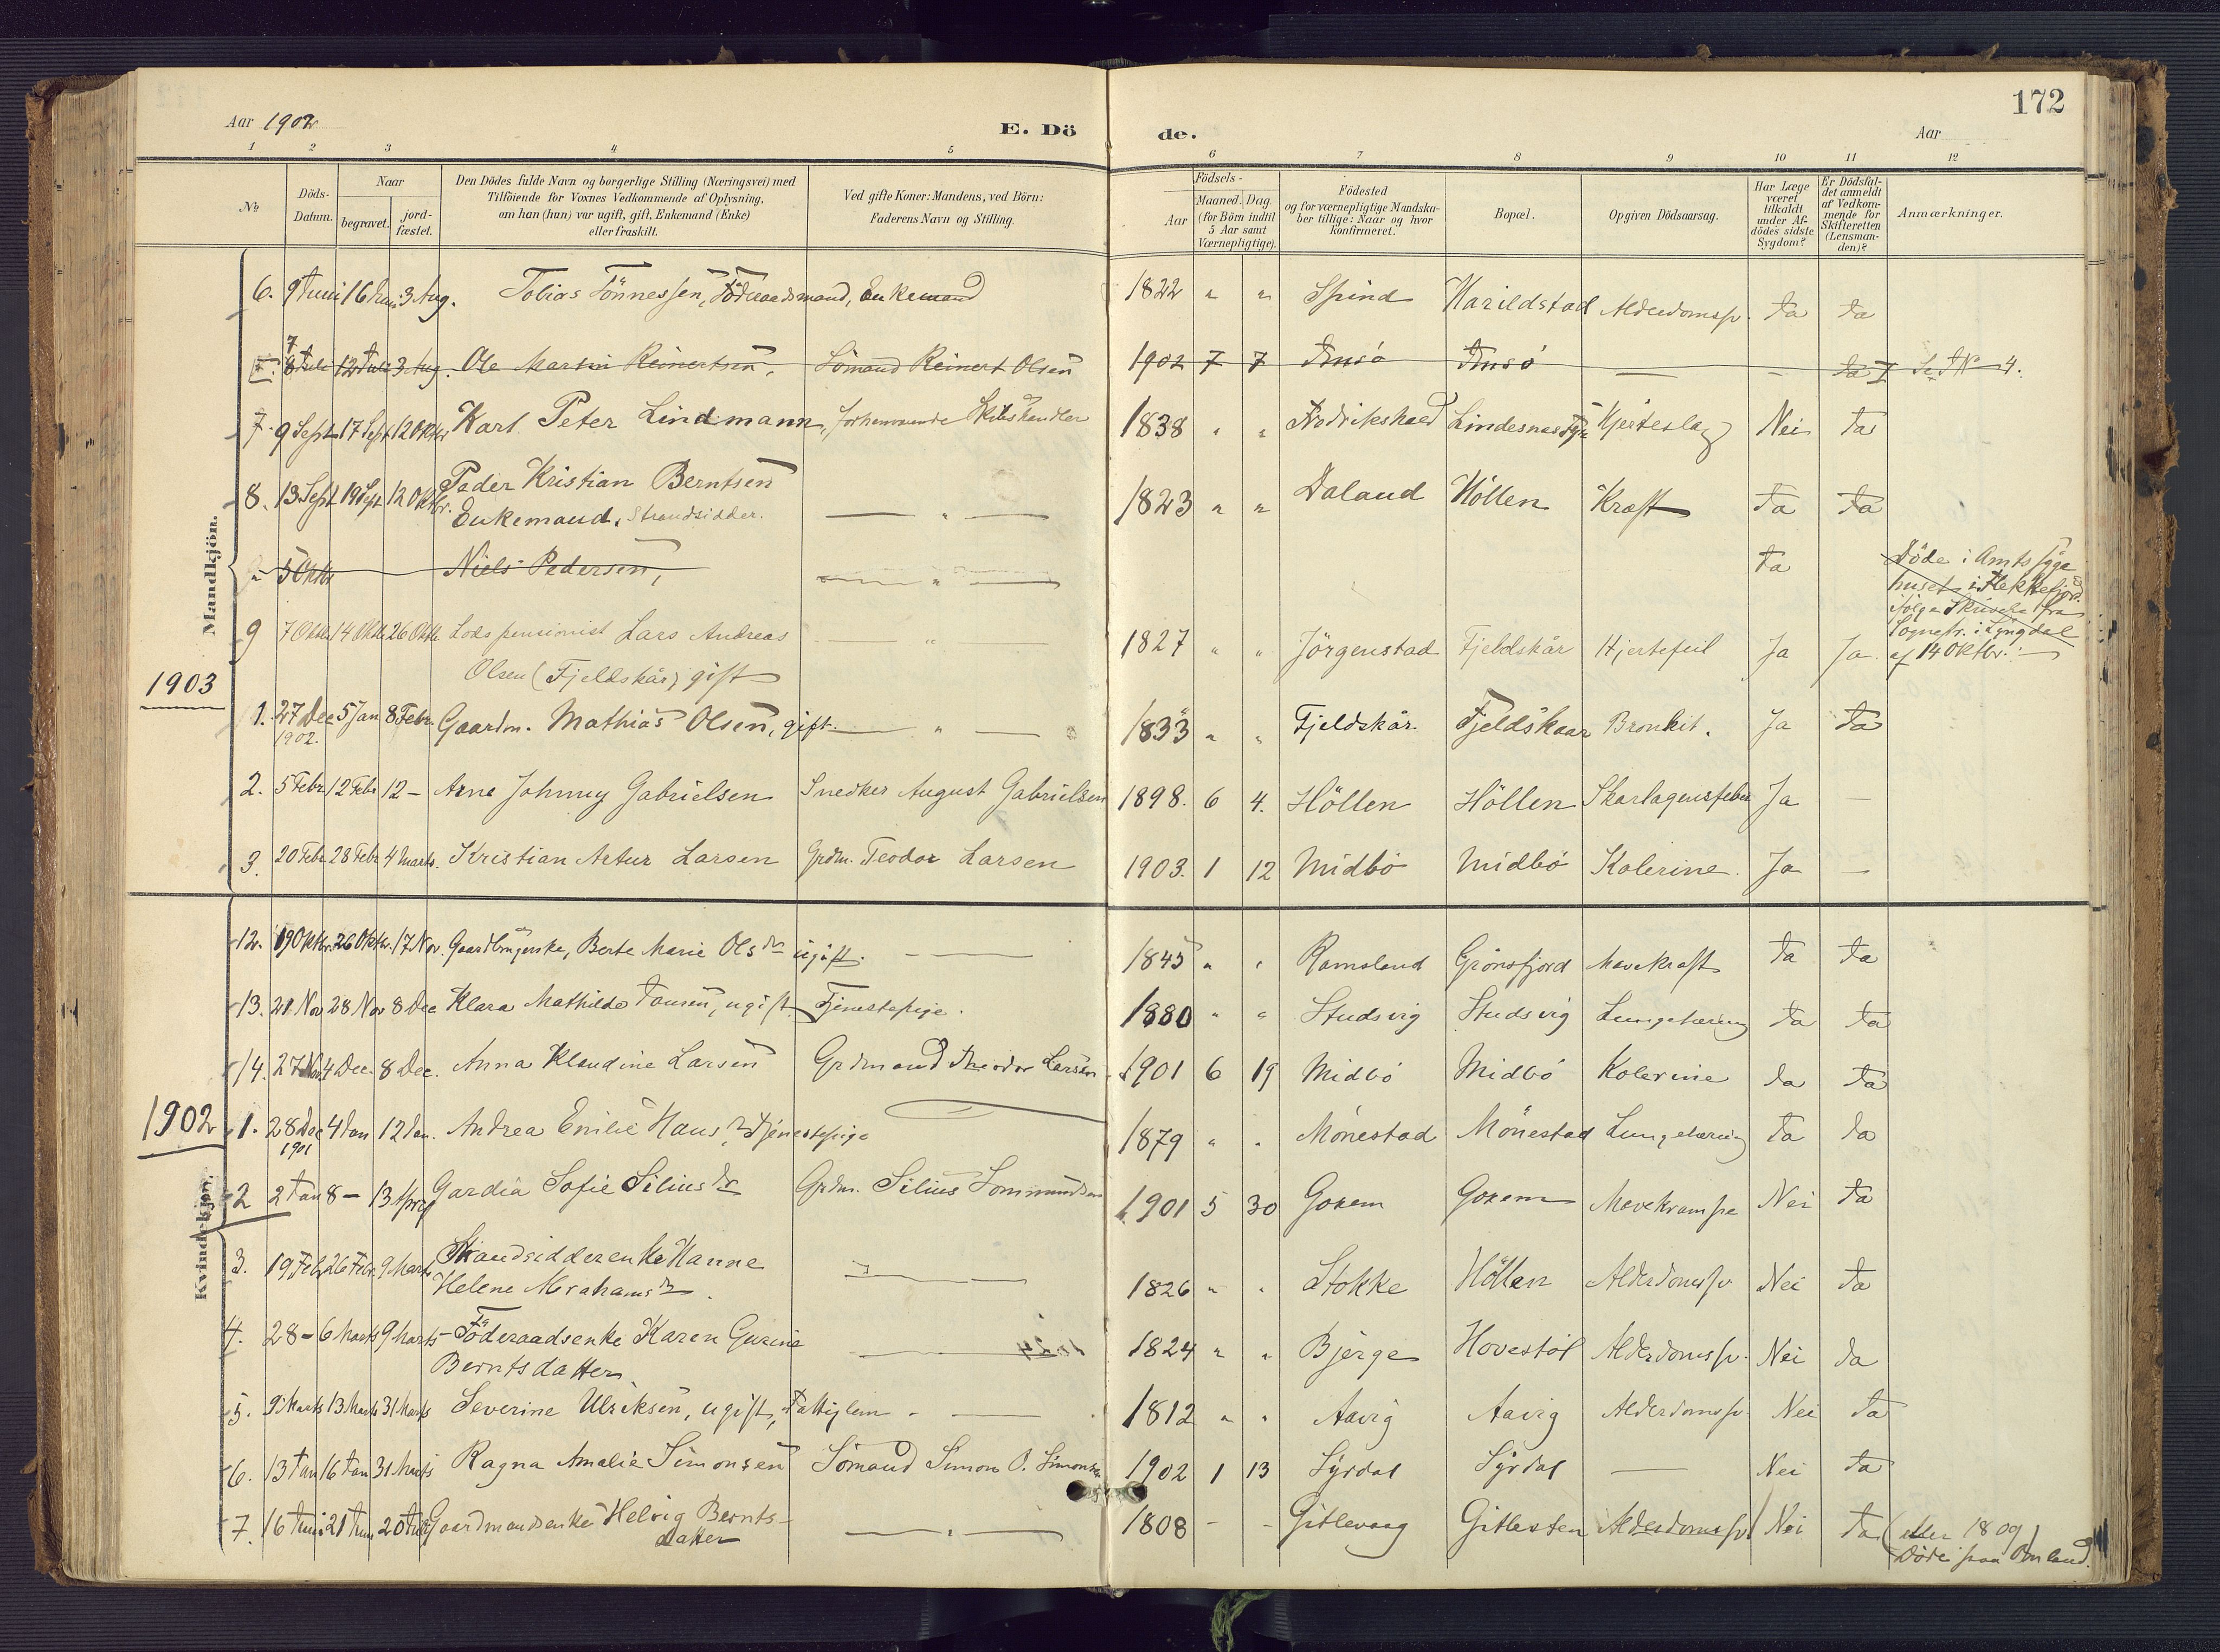 172
Aar 1902
E. Dö
de.
Aar
1 2 3 4 5 6 7 8 9 10 11 12
No
Döds-Datum.
Naar
begravet.
jord-fæstet.
Den Dödes fulde Navn og borgerlige Stilling (Næringsvei) med
Tilföiende for Voxnes Vedkommende af Oplysning,
om han (hun) var ugift, gift, Enkemand (Enke)
eller fraskilt.
Ved gifte Koner: Mandens, ved Börn:
Faderens Navn og Stilling.
Födsels-
Aar
Maaned. Dag.
(for Börn indtil
5 Aar samt
Værnepligtige).
Födested
og for værnepligtige Mandska-
ber tillige: Naar og hvor
konfirmeret.
Bopæl.
Opgiven Dödsaarsag.
Har Læge
været
tilkaldt
under Af-
dödes sidste
Sygdom?
Er Dödsfal-
det anmeldt
af Vedkom-
mende for
Skifteretten
(Lensman-
den)?
Anmærkninger.
Mandkjön.
6. 9 Juni 16 Juni 3 Aug. Tobias Tönnessen, Föderaadsmand, Enkemand 1822 " " Spind Karildstad Alderdomssv. Ja Ja
7 8 Juli 12 Juli 3 Aug. Ole Martin Reinertsen, Sömand Reinert Olsen 1902 7 7 Jnsö Jnsö — — Ja 4.
7. 9 Sept 17 Sept 12 Oktbr Karl Peter Lindmann, forhenværende Skibshandler 1838 " " Fredrikshald Lindesnæs Fyr Hjerteslag Nei Ja
8. 13 Sept 19 Sept 12 Oktbr. Peder Kristian Berntsen
Enkemand, Strandsidder. — " — 1823 " " Daland Höllen Kræft Ja Ja
" 5 Oktbr Niels Pedersen, — " — Ja
Döde i Amtssyge
huset i Flekkefjord
ifölge Skrivelse fra
Sognepr. i Lyngdal
af 14 Oktbr.
9 7 Oktbr 14 Oktbr 26 Oktbr Lods pensionist Lars Andreas
Olsen (Fjeldskår) gift — " — 1827 " " Jörgenstad Fjeldskår Hjertefeil Ja Ja
1903
1. 27 Dec 5 Jan 8 Febr. Gaardm. Mathias Olsen, gift. — " — 1833 " " Fjeldskår. Fjeldskaar Bronkit. Ja Ja
1902.
2. 5 Febr 12 Febr 12 — Arne Johnny Gabrielsen Snedker August Gabrielsen 1898. 6 4. Höllen Höllen Skarlagensfeber Ja —
3. 20 Febr 28 Febr 4 Marts. Kristian Artur Larsen Grdm. Teodor Larsen 1903. 1 12 Midbö Midbö Kolerine. Ja —
Kvindekjön.
12. 19 Oktbr. 26 Oktbr. 17 Nov. Gaardbrugerske, Berte Marie Olsdr ugift. — 1845 " " Ramsland Grönsfjord Mavekræft Ja Ja
13. 21 Nov 28 Nov 8 Dec Klara Mathilde Jansen, ugift Tjenestepige. 1880 " " Studsvig Studsvig Lungetæring Ja Ja
14. 27 Nov 4 Dec. 8 Dec. Anna Klaudine Larsen Grdmand Theodor Larsen 1901 6 19 Midbö Midbö Kolerine Ja Ja
1902
1. 28 Dec 4 Jan 12 Jan. Andrea Emilie Hansdr, Tjenestepige 1879 " " Mönestad Mönestad Lungetæring Ja Ja
1901
2 2 Jan 8 — 13 April Gardia Sofie Siliusdr Grdm. Silius Tommundsen 1901 5 30 Gosem Gosem Mavekrampe Nei Ja
3. 19 Febr 26 Febr 9 Marts Strandsidderenke Hanne
Helene Abrahamsdr. — 1826 " " Stokke Höllen Alderdomssv Nei Ja
4. 28 — 6 Marts 9 Marts — Föderaadsenke Karen Gurine
Berntsdatter. — 1824 " " Bjerge Hovestöl Alderdomssv. Nei Ja
5. 9 Marts 13 Marts 31 Marts Severine Ulriksen, ugift, Fattiglem — 1812 " " Aavig Aavig Alderdomssv. Nei Ja
6. 13 Jan 16 Jan 31 Marts Ragna Amalie Simonsen Sömand Simon O. Simonsen 1902 1 13 Syrdal Syrdal — Nei Ja
7. 16 Juni 21 Juni 20 Juli Gaardmandsenke Helvig Bernts-
datter — " — 1808 - - Gitlevaag Gitlesten Alderdomssv. Nei Ja (eller 1809)
Döde paa Omland.